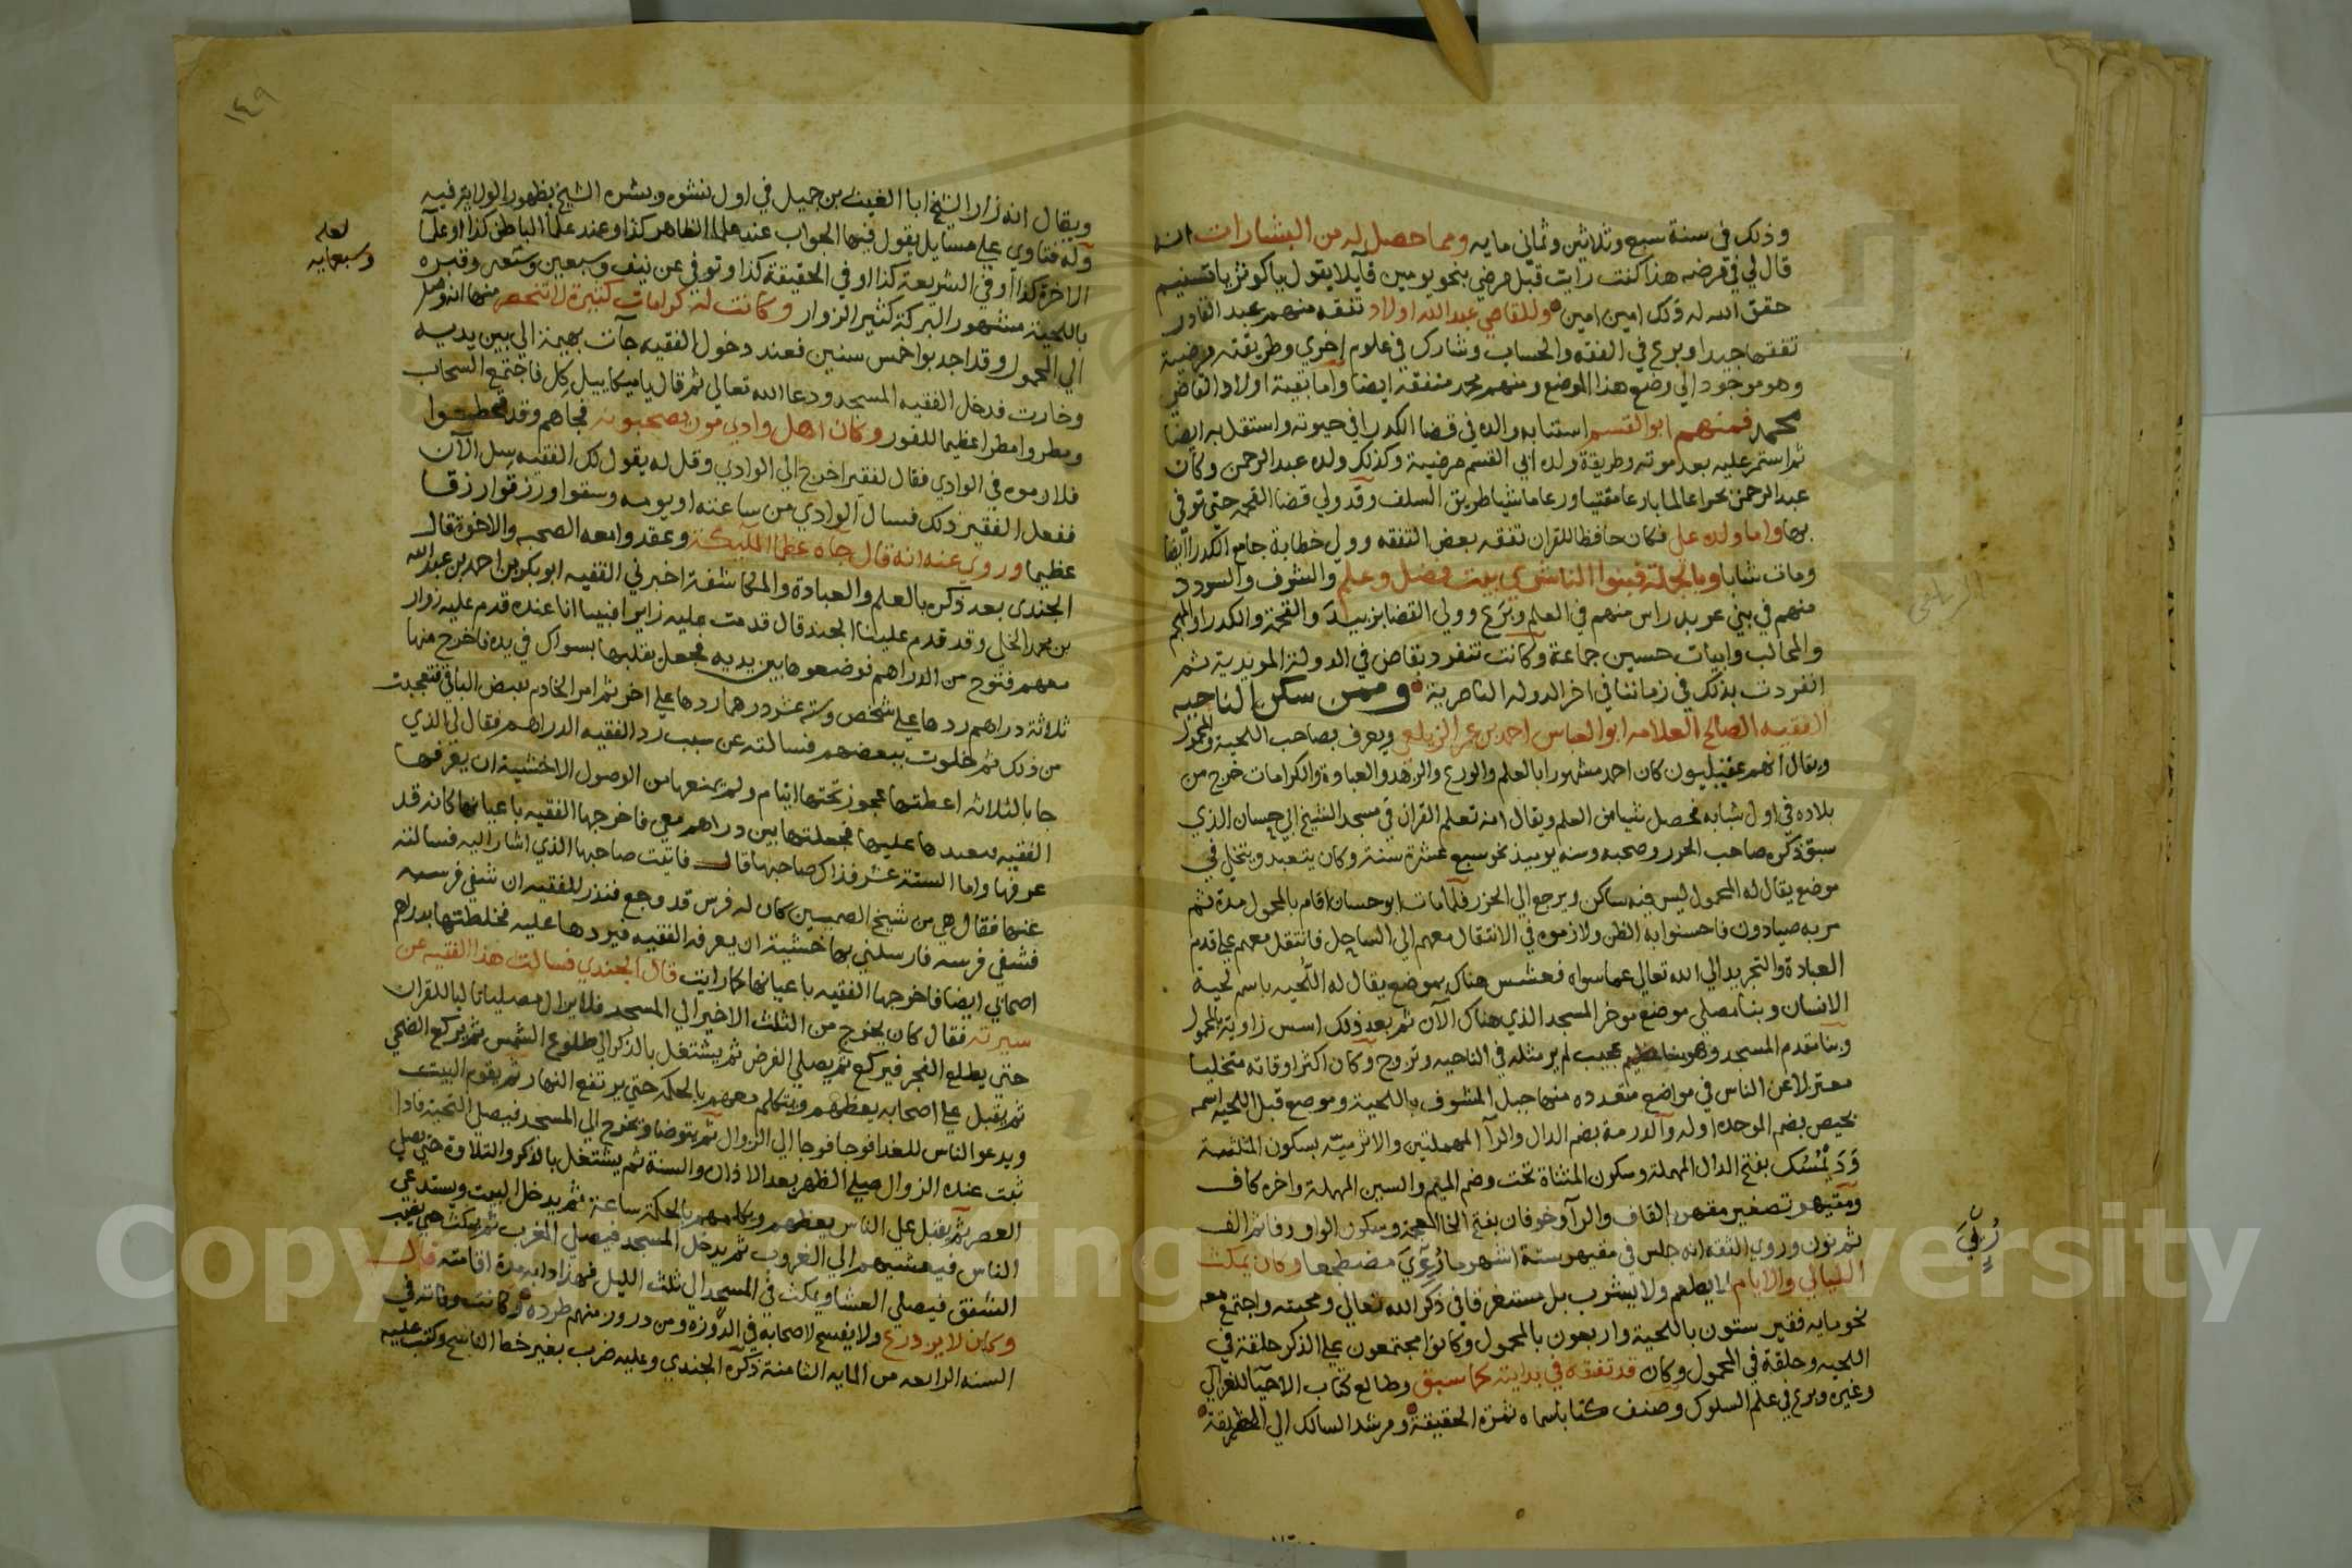 وذلك في سنة سبع وثلاثين وثماني مايه ومما حصل له من البشارات انه
قال لي في مرضه هذا كنت رايت قبل مرضي بنحو يومين قايلا يقول يا كوثر يا تسنيم
حقق الله له ذلك امين امين وللقاضي عبد الله اولاد تفقه منهم عبد القادر
تفقها جيدا وبرع في الفقه والحساب وشارك في علوم اخري وطريقته مرضية
وهو موجود الي وضع هذا الموضع ومنهم محمد متفقه ايضا واما بقية اولاد القاضي
محمد فمنهم ابو القسم استنابه والده في قضا الكدرا في حيوته واستقل به ايضا
ثم استمر عليه بعد موته وطريقة ولده ابي القسم مرضية وكذلك ولده عبد الرحمن وكان
عبد الرحمن بحرا عالما بارعا مفتيا ورعا ماشيا طريق السلف وقد ولي قضا القحمه حتي توفي
بها واما ولده علي فكان حافظا للقران تفقه بعض التفقه وولي خطابة جامع الكدرا ايضا
ومات شابا وبالجملة فبنوا الناشري بيت فضل وعلم والشرف والسودد
منهم في بني عمر بدر راس منهم في العلم وبرع وولي القضا بزبيد والقحمة والكدرا والمهجم
والمخالب وابيات حسين جماعة وكانت تنفرد بقاض في الدولة المويدية ثم
انفردت بذلك في زماننا في اخر الدوله الناصرية وممن سكن الناحيه
الفقيه الصالح العلامه ابو العباس احمد بن عمر الزيلعي ويعرف بصاحب اللحية والمحمول
ويقال انهم عقيليون كان احمد مشهورا بالعلم والورع والزهد والعبادة والكرامات خرج من
بلاده في اول شبابه فحصل شيا من العلم ويقال انه تعلم القران في مسجد الشيخ ابي حسان الذي
سبق ذكره صاحب الحرر وصحبه وسنه يوميذ نحو سبع عشرة سنة وكان يتعبد ويتخلي في
موضع يقال له المحمول ليس فيه ساكن ويرجع الي الحرر فلما مات ابو حسان اقام بالمحمول مدة ثم
مر به صيادون فاحسنوا به الظن ولازموه في الانتقال معهم الي الساحل فانتقل معهم علي قدم
العبادة والتجريد الي الله تعالي عما سواه فعشش هناك بموضع يقال له اللحيه باسم لحية
الانسان وبنا مصلي موضع موخر المسجد الذي هناك الآن ثم بعد ذلك اسس زاوية المحمول
وبنا مقدم المسجد وهو بنا عظيم عجيب لم ير مثله في الناحيه وتزوج وكان اكثر اوقاته متخليا
معتزلا عن الناس في مواضع متعدده منها جبل المشرف باللحية وموضع قبل اللحيه اسمه
بحيص بضم الموحده اوله والدرمة بضم الدال والرآ المهملتين والاثرمية بسكون المثلثه
وديمسك بفتح الدال المهملة وسكون المثناة تحت وضم الميم والسين المهملة واخره كاف
ومقيهر تصغير مقهر بالقاف والرآ وخوفان بفتح الخا المعجمة وسكون الواو وفا ثم الف
ثم نون وروي الثقه انه جلس في مقيهر ستة اشهر ما رُءِيَ مضطجعا وكان يمكث
رُءِيَ
الليالي والايام لا يطعم ولا يشرب بل مستغرقا في ذكر الله تعالي ومحبته واجتمع معه
نحو مايه فقير ستون باللحية واربعون بالمحمول وكانوا مجتمعون علي الذكر حلقة في
اللحيه وحلقة في المحمول وكان قد تفقه في بدايته كما سبق وطالع كتاب الاحيا للغزالي
وغيره وبرع في علم السلوك وصنف كتابا سماه ثمرة الحقيقة ومرشد السالك الي الطريقة
١٤٩
ويقال انه زار الشيخ ابا الغيث بن جميل في اول نشوه وبشره الشيخ بظهور الولاية فيه
وله فتاوي علي مسايل يقول فيها الجواب عند علما الظاهر كذا وعند علما الباطن كذا او علما
الاخرة كذا او في الشريعة كذا او في الحقيقة كذا وتوفي عن نيف وسبعين وقبره
لعله
وسبعمايه
باللحية مشهور البركة كثير الزوار وكانت له كرامات كثيرة لا تنحصر منها انه وصل
الي المحمول وقد اجدبوا خمس سنين فعند دخول الفقيه جآت بهيمة الي بين يديه
وخارت فدخل الفقيه المسجد ودعا الله تعالي ثم قال يا ميكاييل كِل فاجتمع السحاب
ومطروا مطرا عظيما للفور وكان اهل وادي مور يصحبونه فجاهم وقد قحطوا
فلازموه في الوادي فقال لفقير اخرج الي الوادي وقل له يقول لك الفقيه سِل الآن
ففعل الفقير ذلك فسال الوادي من ساعته او يومه وسقوا ورزقوا رزقا
عظيما وروي عنه انه قال جاه عظما المليكة وعقدوا معه الصحبه والاخوة قال
الجندي بعد ذكره بالعلم والعبادة والمكاشفة اخبرني الفقيه ابو بكر بن احمد بن عبد الله
بن محمد الخلي وقد قدم علينا الجند قال قدمت عليه زايرا فبينا انا عنده قدم عليه زوار
معهم فتوح من الدراهم فوضعوها بين يديه فجعل يقلبها بسواك في يده فاخرج منها
ثلاثة دراهم ردها علي شخص وستة عشر درهما ردها علي اخر ثم امر الخادم بقبض الباقي فتعجبت
من ذلك ثم خلوت ببعضهم فسالته عن سبب رد الفقيه الدراهم فقال لي الذي
جا بالثلاثه اعطتها عجوز تحتها ايتام ولم يمنعها من الوصول الا خشية ان يعرفها
الفقيه فيعيدها عليها فجعلتها بين دراهم معي فاخرجها الفقيه باعيانها كانه قد
عرفها واما الستة عشر فذاك صاحبها قال فاتيت صاحبها الذي اشار اليه فسالته
عنها فقال هي من شيخ الصميين كان له فرس قد وجع فنذر للفقيه ان شفي فرسه
فشفي فرسه فارسلني بها خشية ان يعرفه الفقيه فيردها عليه فخلطتها بدراهم
اصحابي ايضا فاخرجها الفقيه باعيانها كما رايت قال الجندي فسالت هذا الفقيه عن
سيرته فقال كان يخرج من الثلث الاخير الي المسجد فلا يزال مصليا تاليا للقران
حتي يطلع الفجر فيركع ثم يصلي الفرض ثم يشتغل بالذكر الي طلوع الشمس ثم يركع الضحي
ثم يقبل علي اصحابه يعظهم ويتكلم معهم بالحكمه حتي يرتفع النهار ثم يقوم البيت
ويدعو الناس للغدا فوجا فوجا الي الزوال ثم يتوضا ويخرج الي المسجد فيصلي التحية فاذا
ثبت عنده الزوال صلي الظهر بعد الاذان والسنة ثم يشتغل بالذكر والتلاوة حتي يصلي
العصر ثم يقبل علي الناس يعظهم ويكلمهم بالحكمة ساعة ثم يدخل البيت ويستدعي
الناس فيعشيهم الي الغروب ثم يدخل المسجد فيصلي المغرب ثم يمكث حتي يغيب
الشفق فيصلي العشا ويمكث في المسجد الي ثلث الليل فهذا دابه مدة اقامته قال
وكان لا يرد ورع ولا يفسح لاصحابه في الدوزه ومن درور منهم طرده وكانت وفاته في
السنه الرابعه من المايه الثامنة ذكره الجندي وعليه ضرب بغير خط الناسخ وكتب عليه